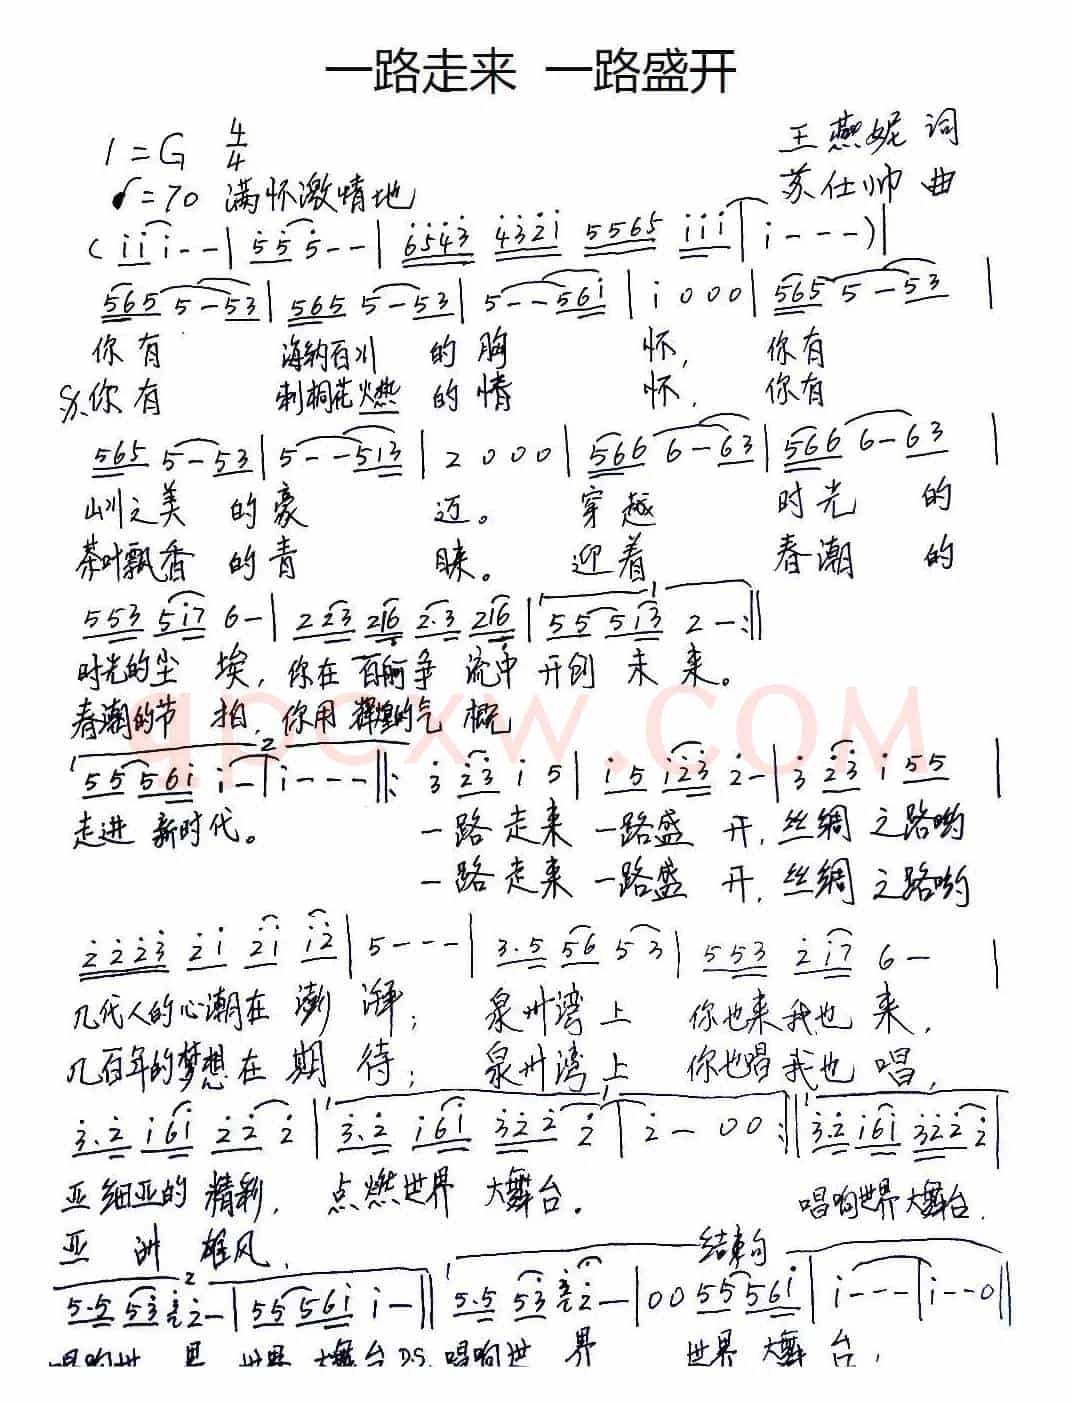 一路走来 一路盛开
1=G 4/4
王燕妮 词
♩=70 满怀激情地
苏仕帅 曲
(i i i - - | 5 5 5 - - | 6543 4321 5565 i i i | i - - - ) |
565 5-53 | 565 5-53 | 5--56i | i 0 0 0 | 565 5-53 |
你有 海纳百川 的胸 怀, 你有
你有 刺桐花燃 的情 怀, 你有
565 5-53 | 5--513 | 2 0 0 0 | 566 6-63 | 566 6-63 |
山川之美 的豪 迈。 穿越 时光 的
茶叶飘香 的青 睐。 迎着 春潮 的
553 5i7 6- | 223 216 2·3 216 | 55 513 2- :||
时光的尘 埃, 你在 百舸争 流中 开创 未来。
春潮的节 拍, 你用 辉煌的气 概
55 556i i- | i - - - ||: 3 23 i 5 | i5 i23 2- | 3 23 i 55 |
走进 新时代。 一路走来 一路盛 开, 丝绸 之路哟
一路走来 一路盛 开, 丝绸 之路哟
2223 2i 2i i2 | 5 - - - | 3·5 56 53 | 553 2i7 6- |
几代人的心潮在 澎 湃; 泉州湾上 你也来我也 来,
几百年的梦想在 期 待; 泉州湾上 你也唱我也 唱,
3·2 i6i 22 2 | 3·2 i6i 322 2 | 2 - 0 0 :|| 3·2 i6i 322 2 |
亚细亚的 精彩, 点燃世界 大舞台。 唱响世界大舞台.
亚 洲 雄风,
5·5 53 2- | 55 556i i- || 结束句 5·5 53 2- | 00 55 556i | i - - - | i - - 0 ||
唱响世 界 世界 大舞台 D.S. 唱响世 界 世界 大舞 台,
qpcxw.com